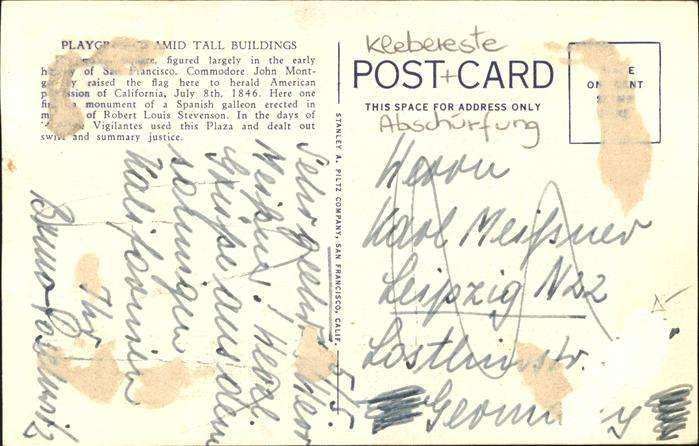 PLAYGR AMID TALL BUILDINGS
figured largely in the early
of San Francisco. Commodore John Mont-
raised the flag here to herald American
of California, July 8th, 1846. Here one
a monument of a Spanish galleon erected in
of Robert Louis Stevenson. In the days of
Vigilantes used this Plaza and dealt out
swift and summary justice.
Sehr geehrter Herr
Meißner! Herzl.
Grüße aus dem
sonnigen
Kalifornien
Ihr
Bruno
STANLEY A. PILTZ COMPANY, SAN FRANCISCO, CALIF.
Klebereste
POST CARD
THIS SPACE FOR ADDRESS ONLY
Abschürfung
ON CENT
Herrn
Karl Meißner
Leipzig N22
Germany